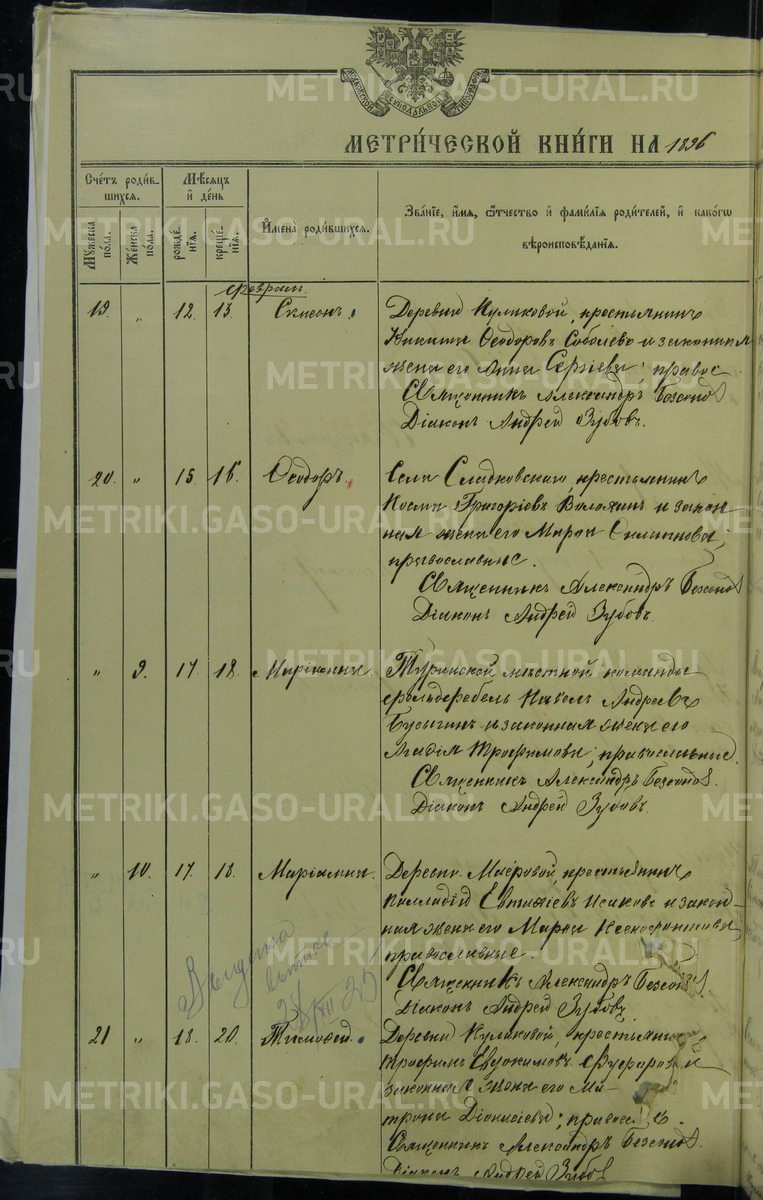 METRIKI.GASO-URAL.RU
МЕТРИ́ЧЕСКОЙ КНИ́ГИ НА 1896
Сче́тъ роди́в-
шихся.
Му́жеска по́ла.
Же́нска по́ла.
Мѣ́сяцъ и҆ де́нь
рожде́нїѧ.
креще́нїѧ.
И҆мена̀ роди́вшихся.
Зва́нїе, и҆́мѧ, ѻ҆́тчество и҆ фами́лїѧ роди́телей, и҆ како́гѡ
вѣроисповѣ́данїѧ.
февраль.
19. " 12. 13. Симеонъ.
Деревни Куликовой, крестьянинъ
Никита Ѳеодоровъ Соболевъ и законная
жена его Анна Сергіева; правос
Священникъ Александръ
Діаконъ Андрей Зубовъ.
20. " 15. 16. Ѳеодоръ.
Села Сладковскаго, крестьянинъ
Косма Григоріевъ и закон
ная жена его Марѳа
православные.
Священникъ Александръ
Діаконъ Андрей Зубовъ.
" 9. 17. 18. Маріамна.
Туринской мѣстной команды
фельдфебель Павелъ Андреевъ
Бусыгинъ и законная жена его
Трофимова; православные.
Священникъ Александръ
Діаконъ Андрей Зубовъ.
" 10. 17. 18. Маріамна.
Деревни Маёровой, крестьянинъ
Калладій Евтихіевъ Исаковъ и закон-
ная жена его Марѳа Ксенофонтова;
православные.
Священникъ Александръ
Діаконъ Андрей Зубовъ.
Выдана
21 " 18. 20. Тимоѳей.
Деревни Куликовой, крестьянинъ
Трофимъ Евдокимовъ и
законная жена его Ма
трона Діонисіева; правос
Священникъ Александръ
Діаконъ Андрей Зубов